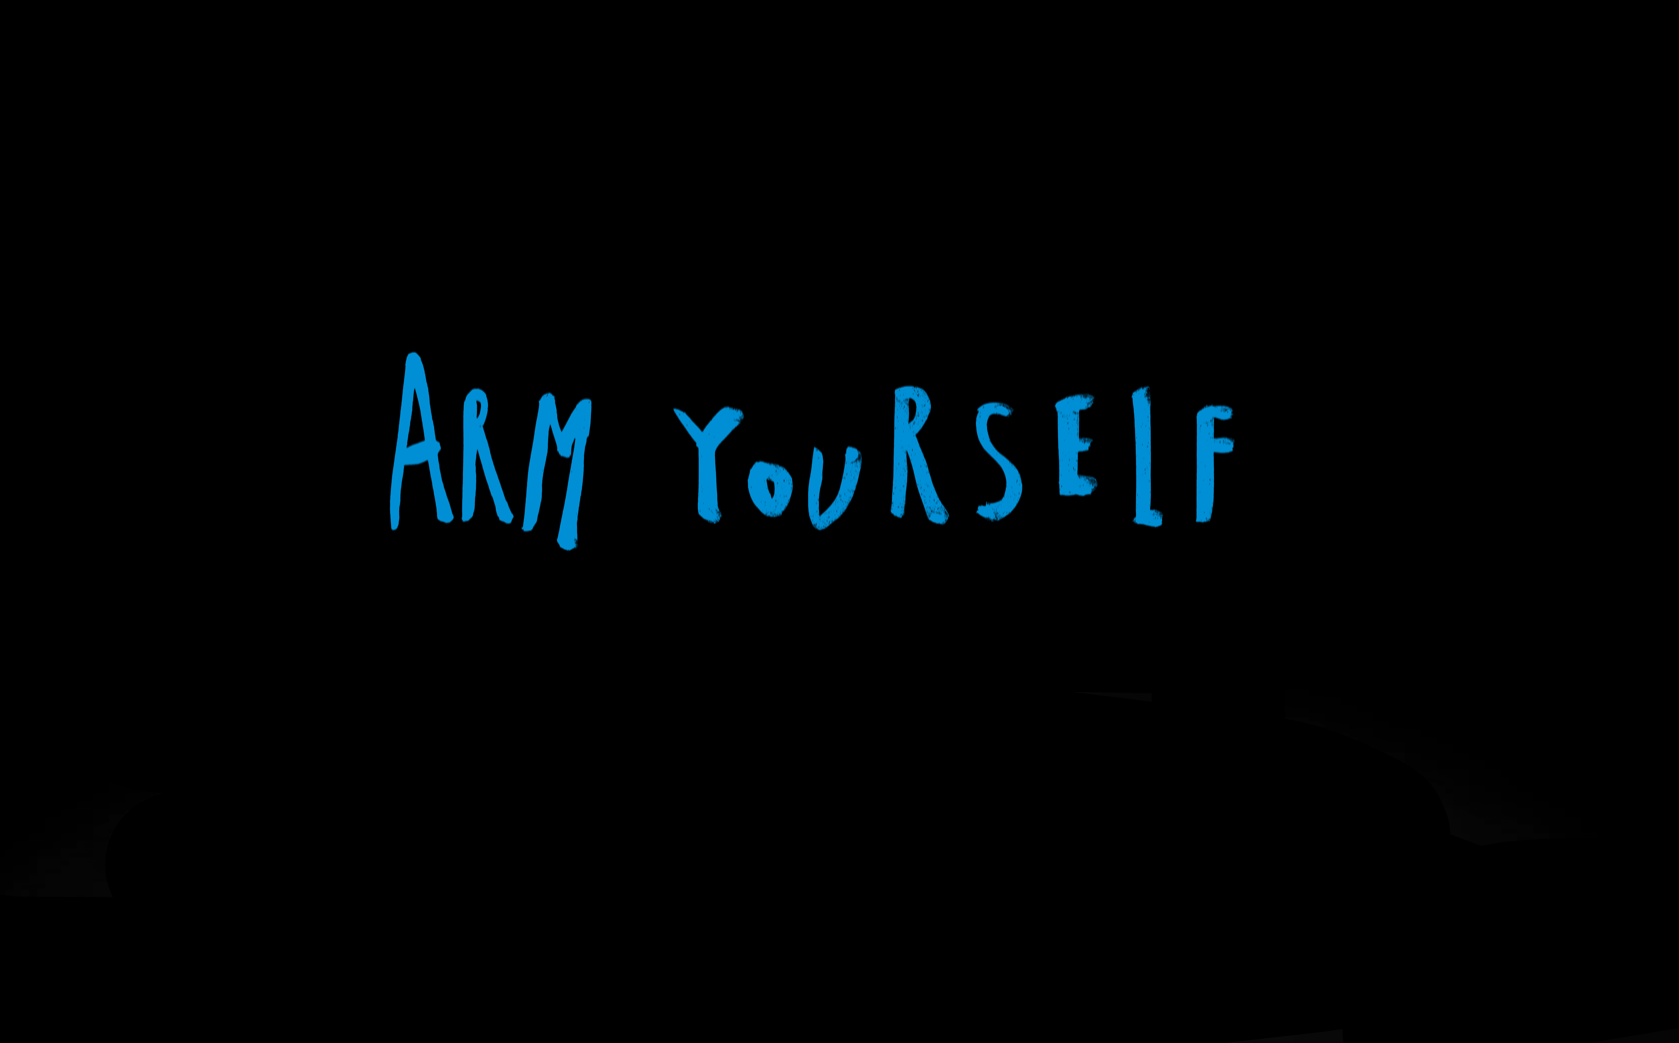 ARM YoURSELF